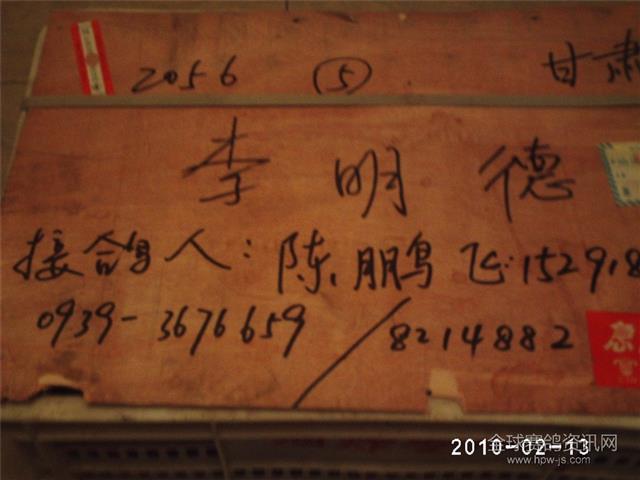 2056 (5) 甘肃
李明德
接鸽人:陈鹏飞:152918
0939-3676659/8214882
2010-02-13
全球赛鸽资讯网
www.hpw-js.com